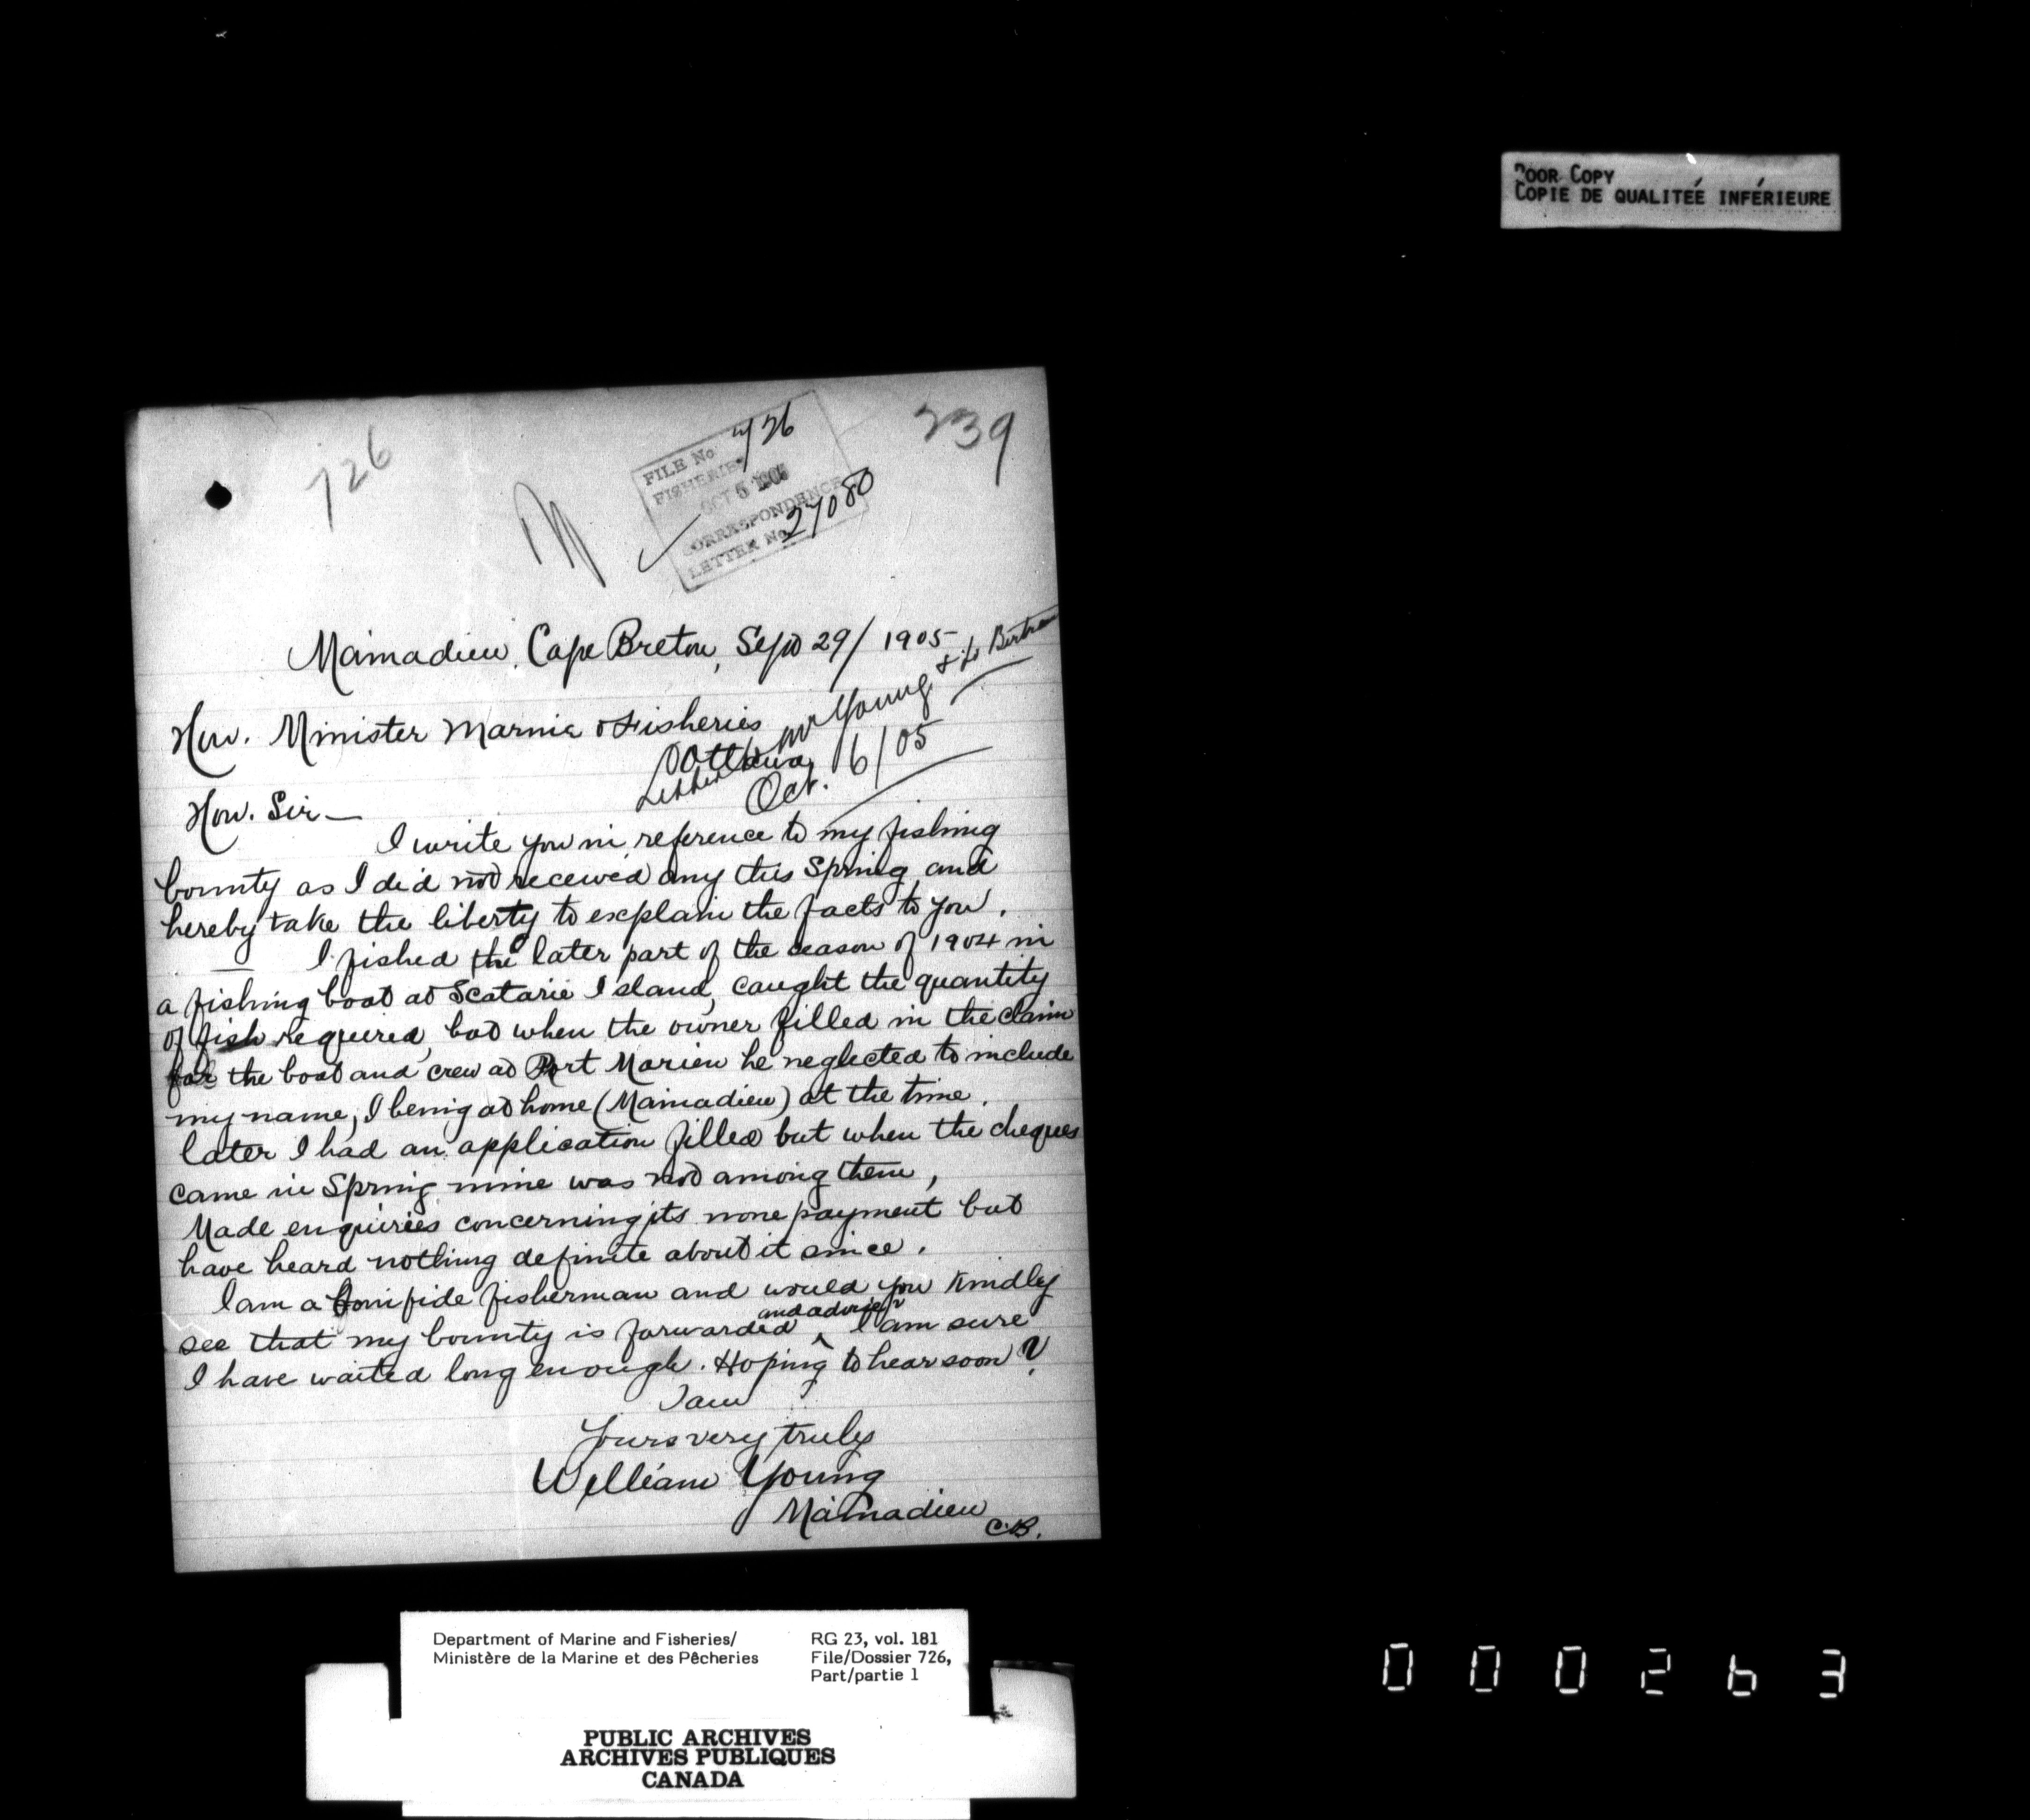 POOR COPY
COPIE DE QUALITEÉ INFÉRIEURE
726
239
FILE No 726
FISHERIES
OCT 5 1905
CORRESPONDENCE
LETTER No 27080
Mainadieu, Cape Breton, Sept 29/1905
Hon. Minister Marnie & Fisheries
Ottawa
Letter to Mr Young & to Bertram
Oct. 16/05
Hon. Sir—
I write you in reference to my fishing
bounty as I did not received any this Spring and
hereby take the liberty to explain the facts to you.
I fished the later part of the season of 1904 in
a fishing boat at Scatarie Island, caught the quantity
of fish required, but when the owner filled in the claim
for the boat and crew at Port Morien he neglected to include
my name, I being at home (Mainadieu) at the time.
later I had an application filled but when the cheques
came in Spring mine was not among them,
Made enquiries concerning its none payment but
have heard nothing definite about it since.
I am a bonifide fisherman and would you kindly
see that my bounty is forwarded and advise I am sure
I have waited long enough. Hoping to hear soon?
I am
Yours very truly
William Young
Mainadieu
C.B.
Department of Marine and Fisheries/
Ministère de la Marine et des Pêcheries
RG 23, vol. 181
File/Dossier 726,
Part/partie 1
PUBLIC ARCHIVES
ARCHIVES PUBLIQUES
CANADA
000263